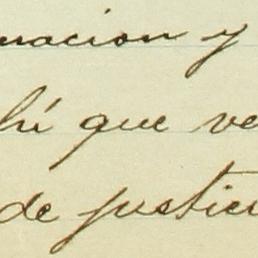 macion y
hi que ve
de justici